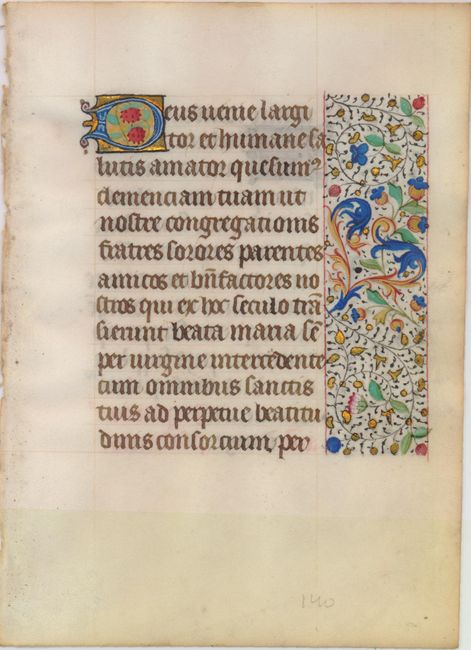 Deus uenie largi
tor et humane sa
lutis amator quesumꝰ
clemenciam tuam ut
nostre congregationis
fratres sorores parentes
amicos et bn̄factores no
stros qui ex hoc seculo trā
sierunt beata maria sē
per uirgine intercedente
cum omnibus sanctis
tuis ad perpetue beatitu
dinis consorcium per
140